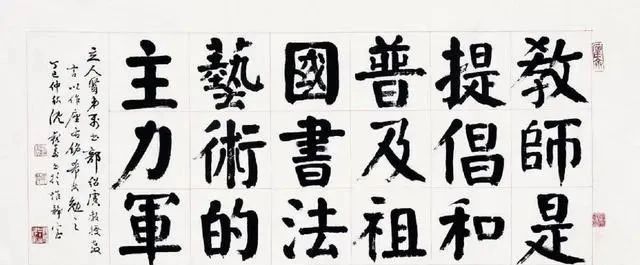 教師是
提倡和
普及祖
國書法
藝術的
主力軍
立人賢弟 郭紹虞教授
言以作座右銘希 勉之
丁巳仲秋沈